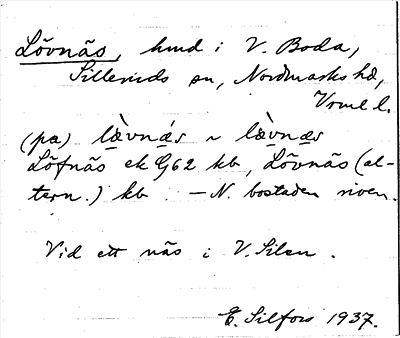 Lövnäs, hmd i V. Boda,
Silleruds sn, Nordmarks hd,
Vrml. l.
(pa) lævnás ~ lævnæs
Löfnäs ek G62 kb, Lövnäs (al-
tern.) kb. — N. bostaden riven.
Vid ett näs i V. Silen.
E. Silfors 1937.